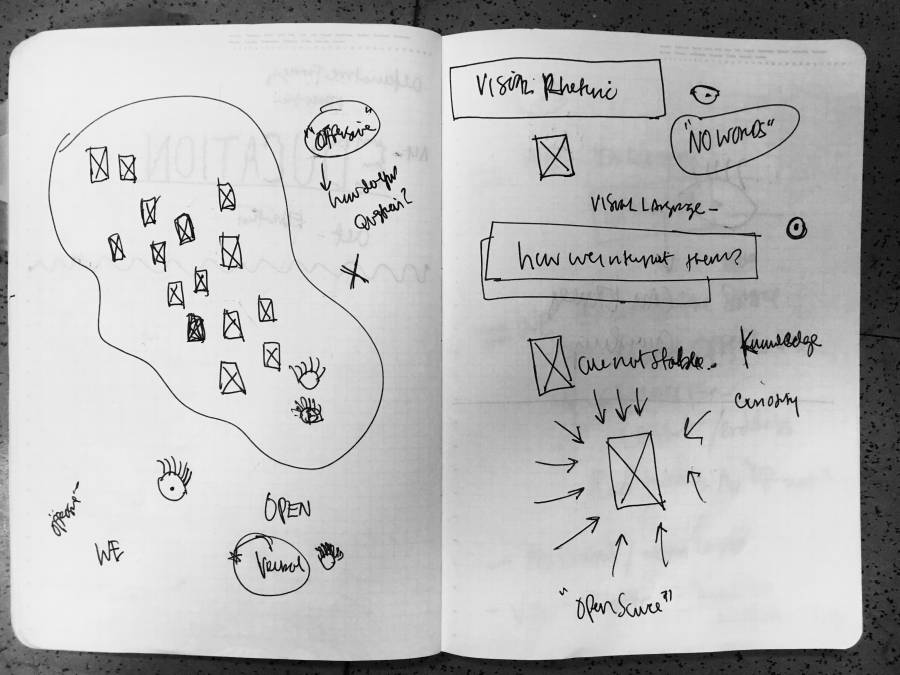 "Offensive"
how do you
question?
OPEN
WE
Visual Rhetoric
"NO WORDS"
VISUAL LANGUAGE -
how we interpret them?
are not stable.
Knowledge
Curiosity
"Open Source"
EDUCATION